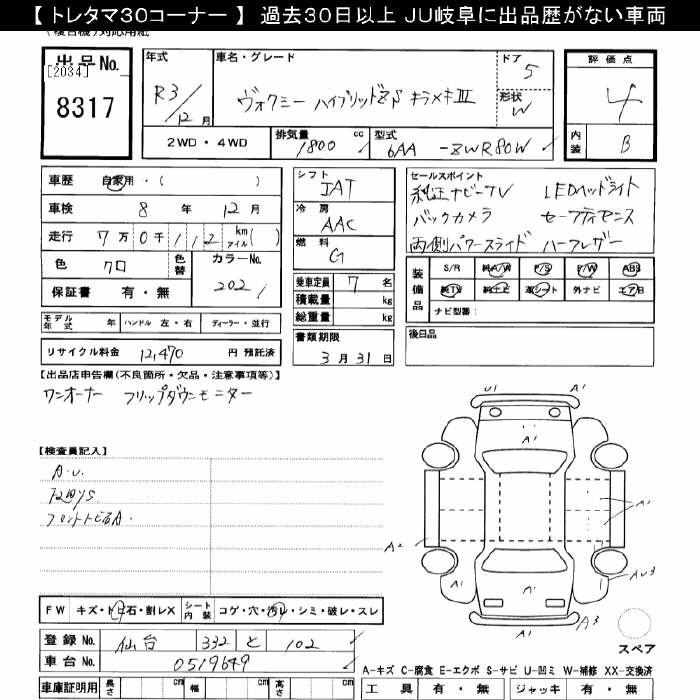 【 トレタマ30コーナー 】 過去30日以上 JU岐阜に出品歴がない車両
出品No.
[2034]
8317
年式
R3/12月
車名・グレード
ヴォクシー ハイブリッドZS キラメキⅢ
ドア
5
形状
W
評価点
4
内装
B
2WD・4WD
排気量
1800
cc
型式
6AA -ZWR80W
車歴
自家用・( )
車検
8 年 12 月
走行
7 万 0 千 1 1 2 km マイル( )
色
クロ
色替
カラーNo.
202
保証書 有・無
シフト
IAT
冷房
AAC
燃料
G
乗車定員 7 名
積載量 kg
総重量 kg
書類期限
3 月 31 日
セールスポイント
純正ナビTV LEDヘッドライト
バックカメラ セーフティセンス
両側パワースライド ハーフレザー
装備品
S/R 純A/W P/S P/W ABS
純TV 純ナビ 革シート 外ナビ エアB
ナビ型番:
後日品
モデル年式 年 ハンドル 左・右 ディーラー・並行
リサイクル料金 12,470 円 預託済
【出品店申告欄(不良箇所・欠品・注意事項等)】
ワンオーナー フリップダウンモニター
【検査員記入】
A.U.
フロントトビ石A.
U1
A1
A1
A1
A1
A2
A1
A1
AU3
A3
スペア
FW キズ・トビ石・割レX シート内装 コゲ・穴・汚レ・シミ・破レ・スレ
登録No. 仙台 332 と 102
車台No. 0519649
車庫証明用 長さ cm 幅 cm 高さ cm
A-キズ C-腐食 E-エクボ S-サビ U-凹ミ W-補修 XX-交換済
工具 有・無 ジャッキ 有・無